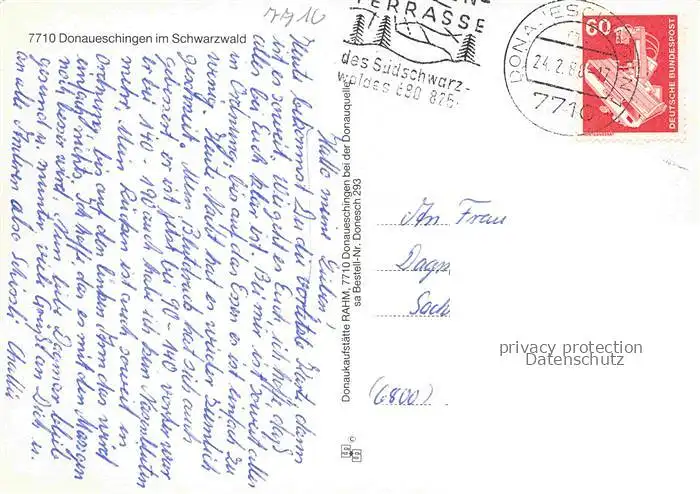 7710
7710 Donaueschingen im Schwarzwald
TERRASSE
des Südschwarz-
waldes 680-825
DONAUESCHINGEN
24.2.8
7710
60
DEUTSCHE BUNDESPOST
Hallo meine Lieben,
Heute bekommst Du die vorletzte Karte, dann
ist es soweit. Wie geht es Euch, ich hoffe, daß
alles bei Euch klar ist. Bei mir ist soweit alles
in Ordnung, bis auf das Essen es ist einfach zu
wenig. Heute Nacht hat es wieder ziemlich
geschneit. Mein Blutdruck hat sich auch
gebessert er ist jetzt bei 90-140 vorher war
er bei 110-190 auch habe ich kein Nasenbluten
mehr. Mein Rücken ist auch soweit in
Ordnung, bis auf den linken Arm das wird
einfach nichts. Ich hoffe, das es mit den Massagen
noch besser wird. Nun liebe Dagmar bleib
gesund u. munter viele Grüße an Dich u.
an alle Anderen also Tschüssi
Donaukaufstätte RAHM, 7710 Donaueschingen bei der Donauquelle
sa Bestell-Nr. Donesch 293
An Frau
Dagm
Soch
(6800)
privacy protection
Datenschutz